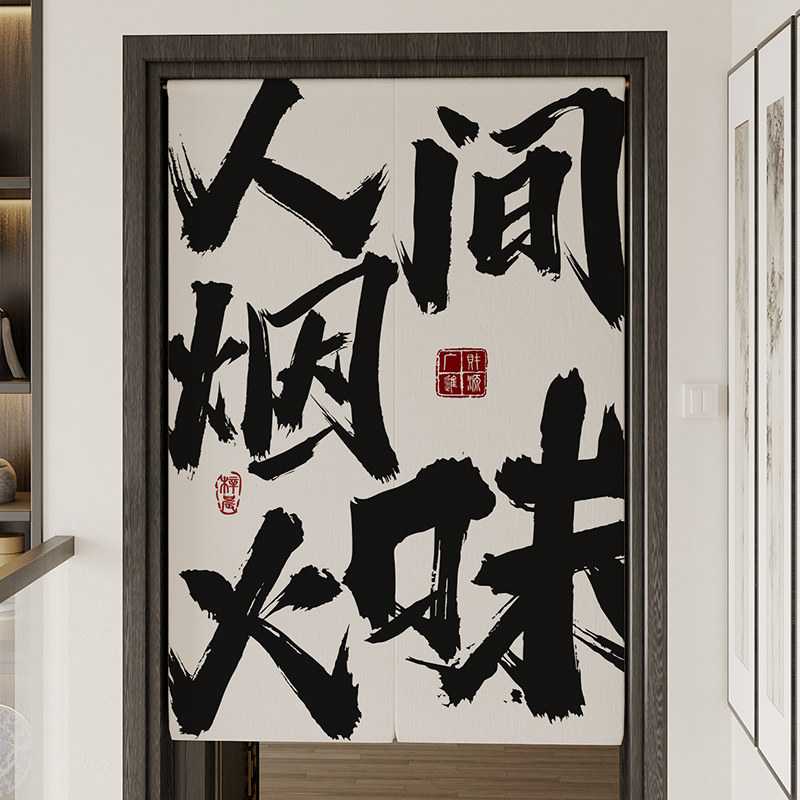 人间
烟
火味
财源
广进
梓晨